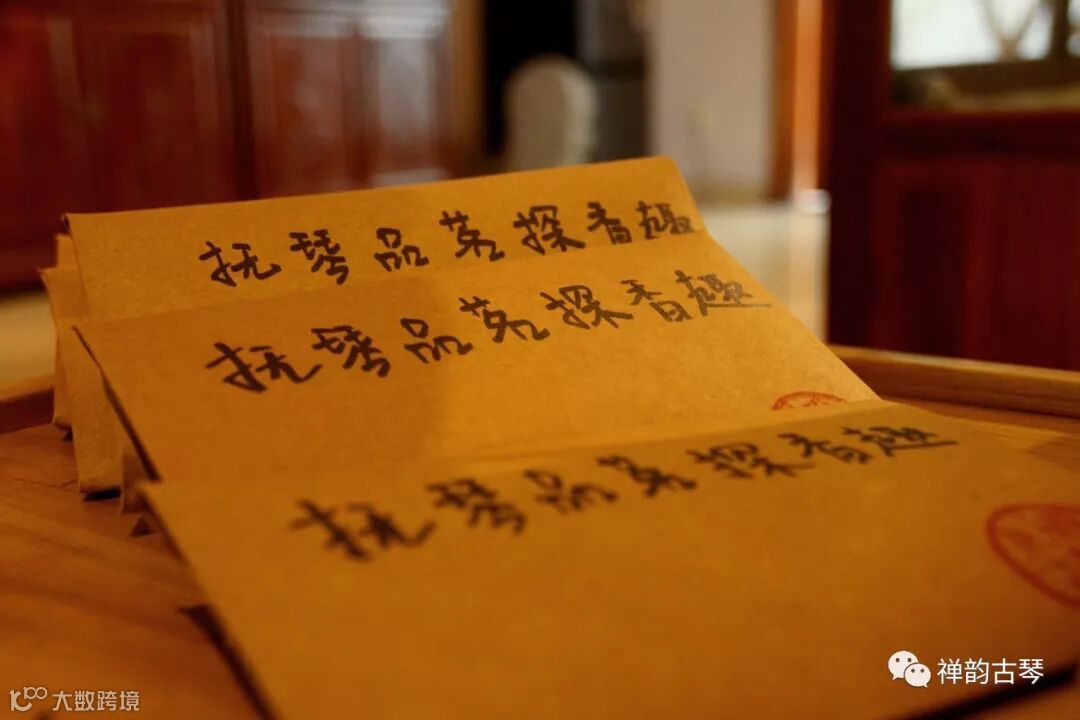 抚琴品茗探香趣
抚琴品茗探香趣
抚琴品茗探香趣
禅韵古琴
大数跨境